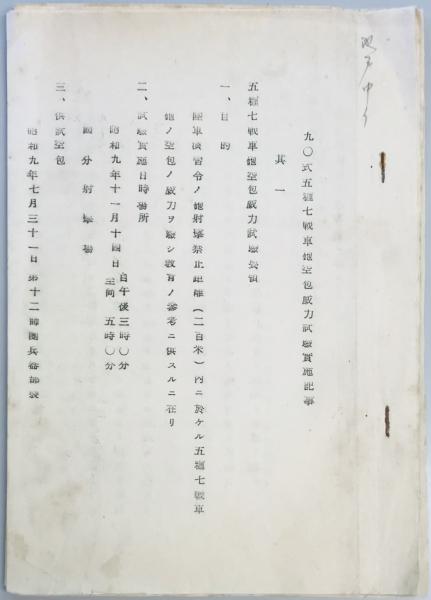 九〇式五糎七戦車砲空包威力試験実施記事
其一
五糎七戦車砲空包威力試験要領
一、目的
陸軍演習令ノ砲射撃禁止距離（二百米）内ニ於ケル五糎七戦車
砲ノ空包ノ威力ヲ験シ教育ノ参考ニ供スルニ在リ
二、試験実施日時場所
昭和九年十一月十四日 自午後三時〇分 至同五時〇分
国分射撃場
三、供試空包
昭和九年七月三十一日第十二師団兵器部長